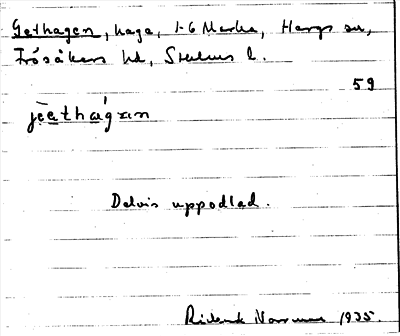 Gethagen, hage, 1-6 Marka, Hargs sn,
Frösåkers hd, Sthlms l.
59
jèethágxn
Delvis uppodlad.
Rickard 1935.